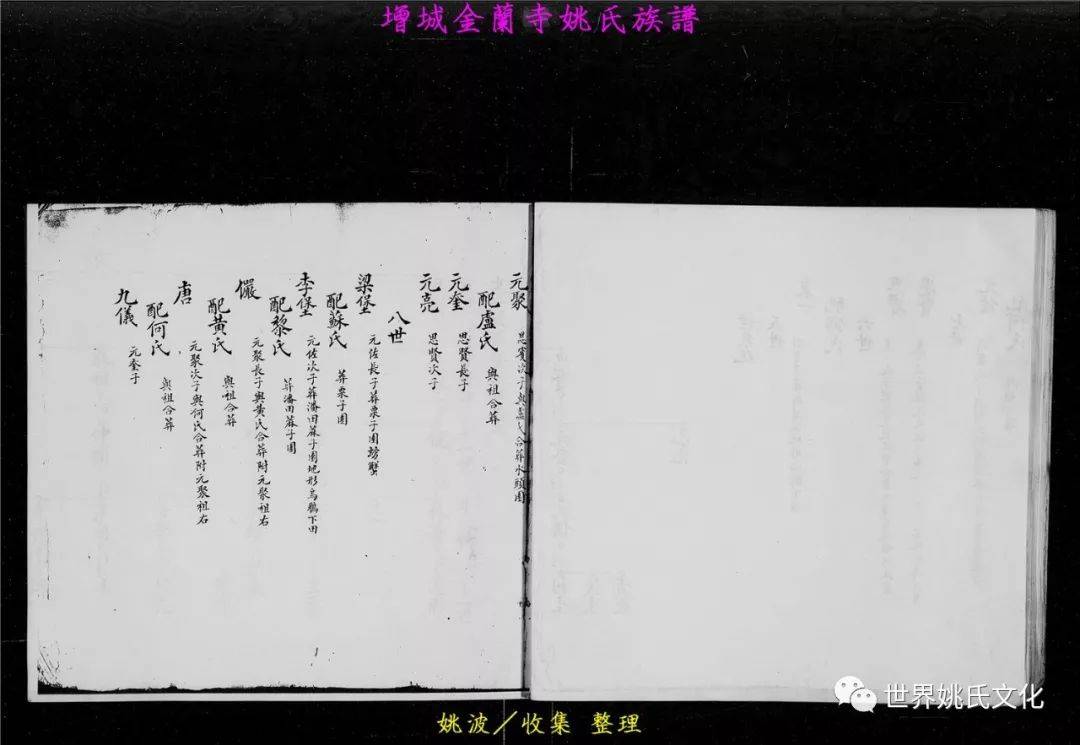 增城金蘭寺姚氏族譜
元聚 思賓次子與盧氏合葬水頭園
配盧氏 與祖合葬
元奎 思賢長子
元亮 思賢次子
八世
梁堡 元佐長子葬栗子園螃蟹
配蘇氏 葬栗子園
李堡 元佐次子葬潘田蔴子園地形烏鴉下田
配黎氏 葬潘田蔴子園
儼 元聚長子與黃氏合葬附元聚祖右
配黃氏 與祖合葬
唐 元聚次子與何氏合葬附元聚祖右
配何氏 與祖合葬
九儀 元奎子
世界姚氏文化
姚波／收集 整理